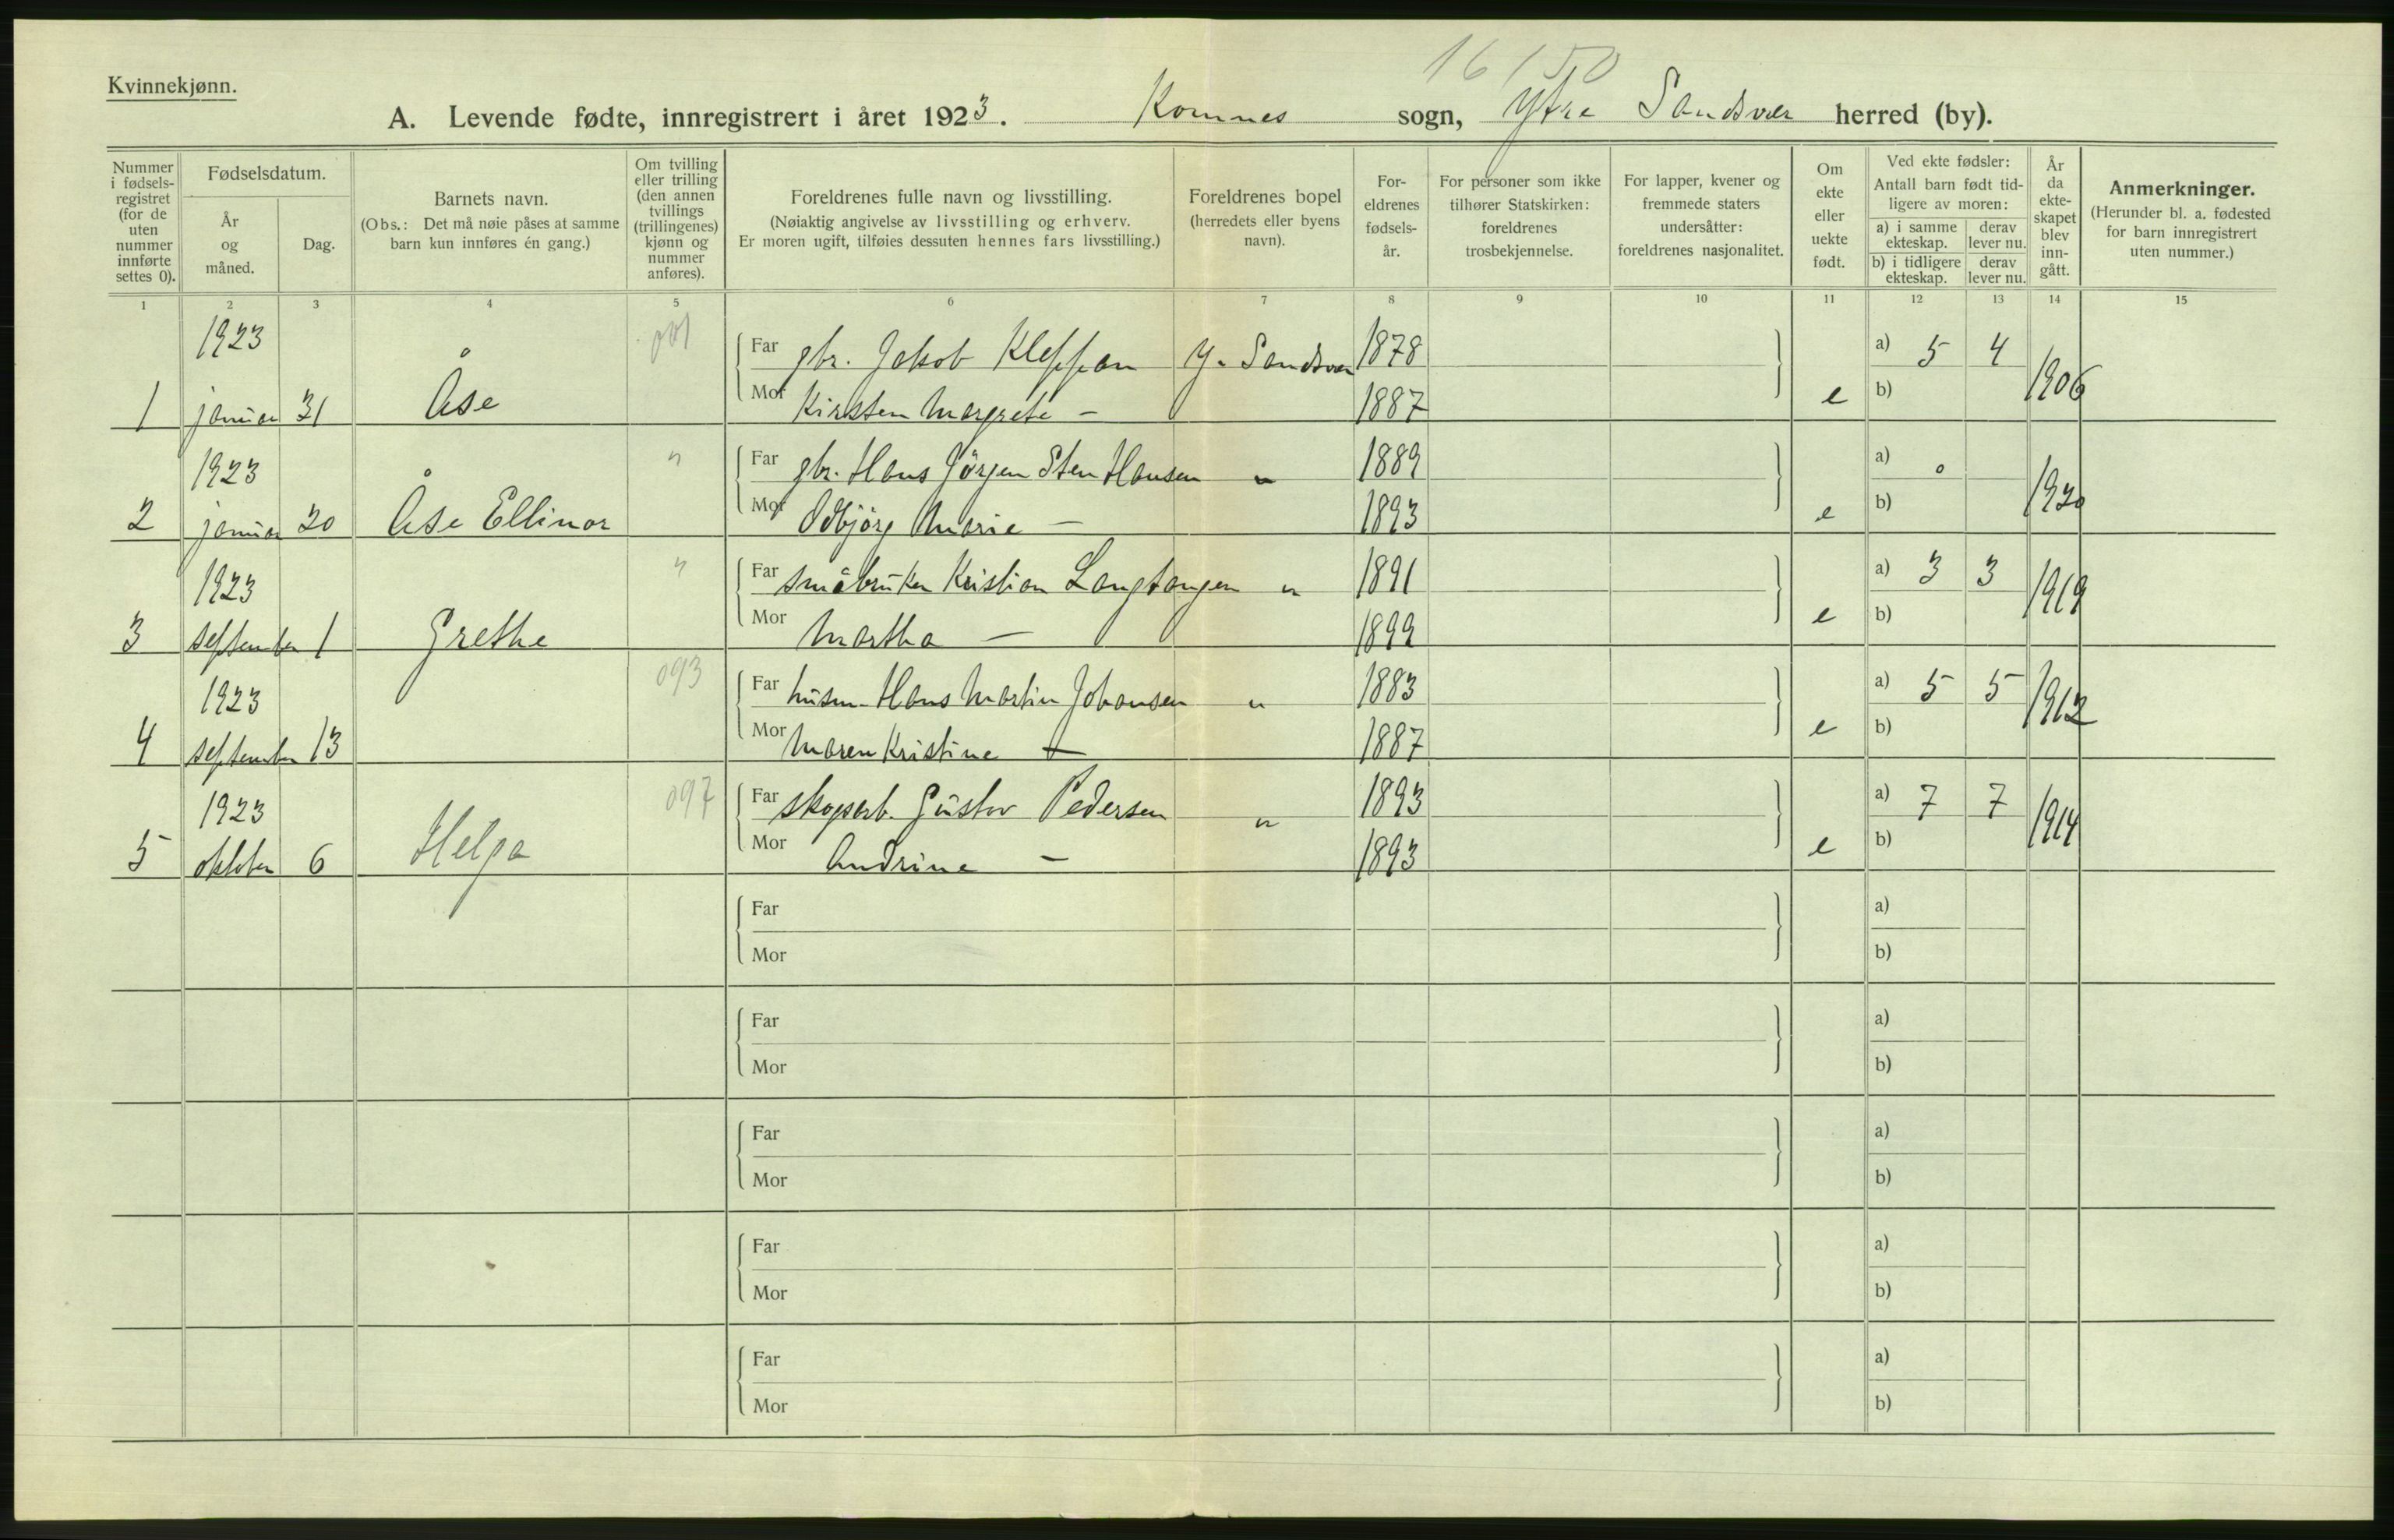 16150
Kvinnekjønn.
A. Levende fødte, innregistrert i året 1923. Komnes sogn, Ytre Sandsvær herred (by).
Nummer i fødsels-registret (for de uten nummer innførte settes 0).
Fødselsdatum.
År og måned.
Dag.
Barnets navn.
(Obs.: Det må nøie påses at samme barn kun innføres én gang.)
Om tvilling eller trilling (den annen tvillings (trillingenes) kjønn og nummer anføres).
Foreldrenes fulle navn og livsstilling.
(Nøiaktig angivelse av livsstilling og erhverv.
Er moren ugift, tilføies dessuten hennes fars livsstilling.)
Foreldrenes bopel
(herredets eller byens navn).
For-eldrenes fødsels-år.
For personer som ikke tilhører Statskirken: foreldrenes trosbekjennelse.
For lapper, kvener og fremmede staters undersåtter: foreldrenes nasjonalitet.
Om ekte eller uekte født.
Ved ekte fødsler:
Antall barn født tid-ligere av moren:
a) i samme ekteskap. derav lever nu.
b) i tidligere ekteskap. derav lever nu.
År da ekte-skapet blev inn-gått.
Anmerkninger.
(Herunder bl. a. fødested for barn innregistrert uten nummer.)
1 2 3 4 5 6 7 8 9 10 11 12 13 14 15
1923 001 Far gbr. Jakob Kleppan Y. Sandsvær 1878 a) 5 4
1 januar 31 Åse Mor Kirsten Margrete — 1887 e b) 1906
1923 " Far gbr. Hans Jörgen Sten Hansen " 1889 a) 0
2 januar 20 Åse Ellinor Mor Odbjörg Marie — 1893 e b) 1920
1923 " Far småbruker Kristian Langtangen " 1891 a) 3 3
3 september 1 Grethe Mor Martha — 1899 e b) 1919
1923 093 Far husm. Hans Martin Johansen " 1883 a) 5 5
4 september 13 Mor Maren Kristine — 1887 e b) 1912
1923 097 Far skogsarb. Gustav Pedersen " 1893 a) 7 7
5 oktober 6 Helga Mor Andrine — 1893 e b) 1914
Far a)
Mor b)
Far a)
Mor b)
Far a)
Mor b)
Far a)
Mor b)
Far a)
Mor b)